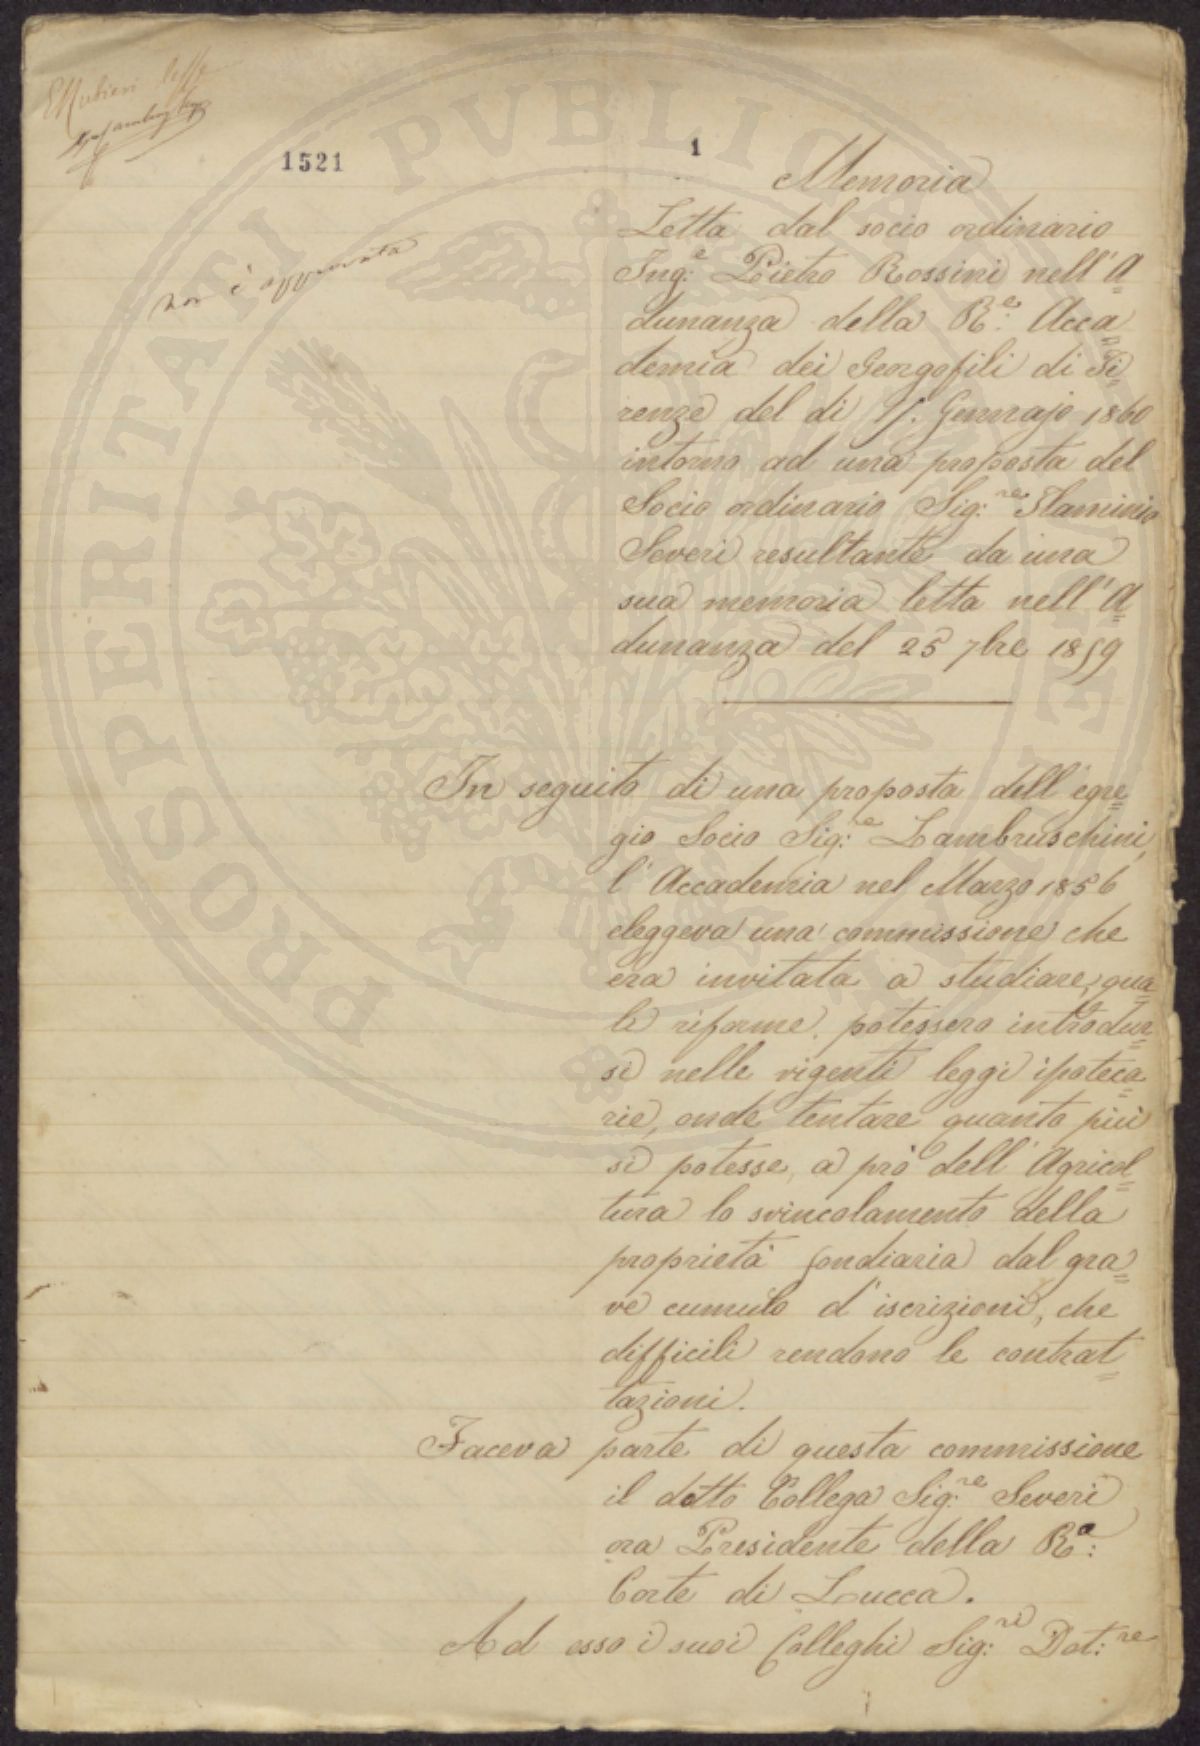 1521
1
non è approvata
Memoria
Letta dal socio ordinario
Ing:e Pietro Rossini nell'A=
dunanza della R:e Acca=
demia dei Georgofili di Fi=
renze del dì Gennajo 1860
intorno ad una proposta del
Socio ordinario Sig:re Flaminio
Severi resultante da una
sua memoria letta nell'A=
dunanza del 25 7bre 1859
In seguito di una proposta dell'egre=
gio Socio Sig:re Lambruschini,
l'Accademia nel Marzo 1856
eleggeva una commissione che
era invitata a studiare, qua=
li riforme potessero introdur=
si nelle vigenti leggi ipoteca=
rie, onde tentare quanto più
si potesse, a prò dell'Agricol=
tura lo svincolamento della
proprietà fondiaria dal gra=
ve cumulo d'iscrizioni, che
difficili rendono le contrat=
tazioni.
Faceva parte di questa commissione
il dotto Collega Sig:re Severi
ora Presidente della R:a
Corte di Lucca.
Ad esso i suoi Colleghi Sig:ri Dot:re
PROSPERITATI PUBLICAE